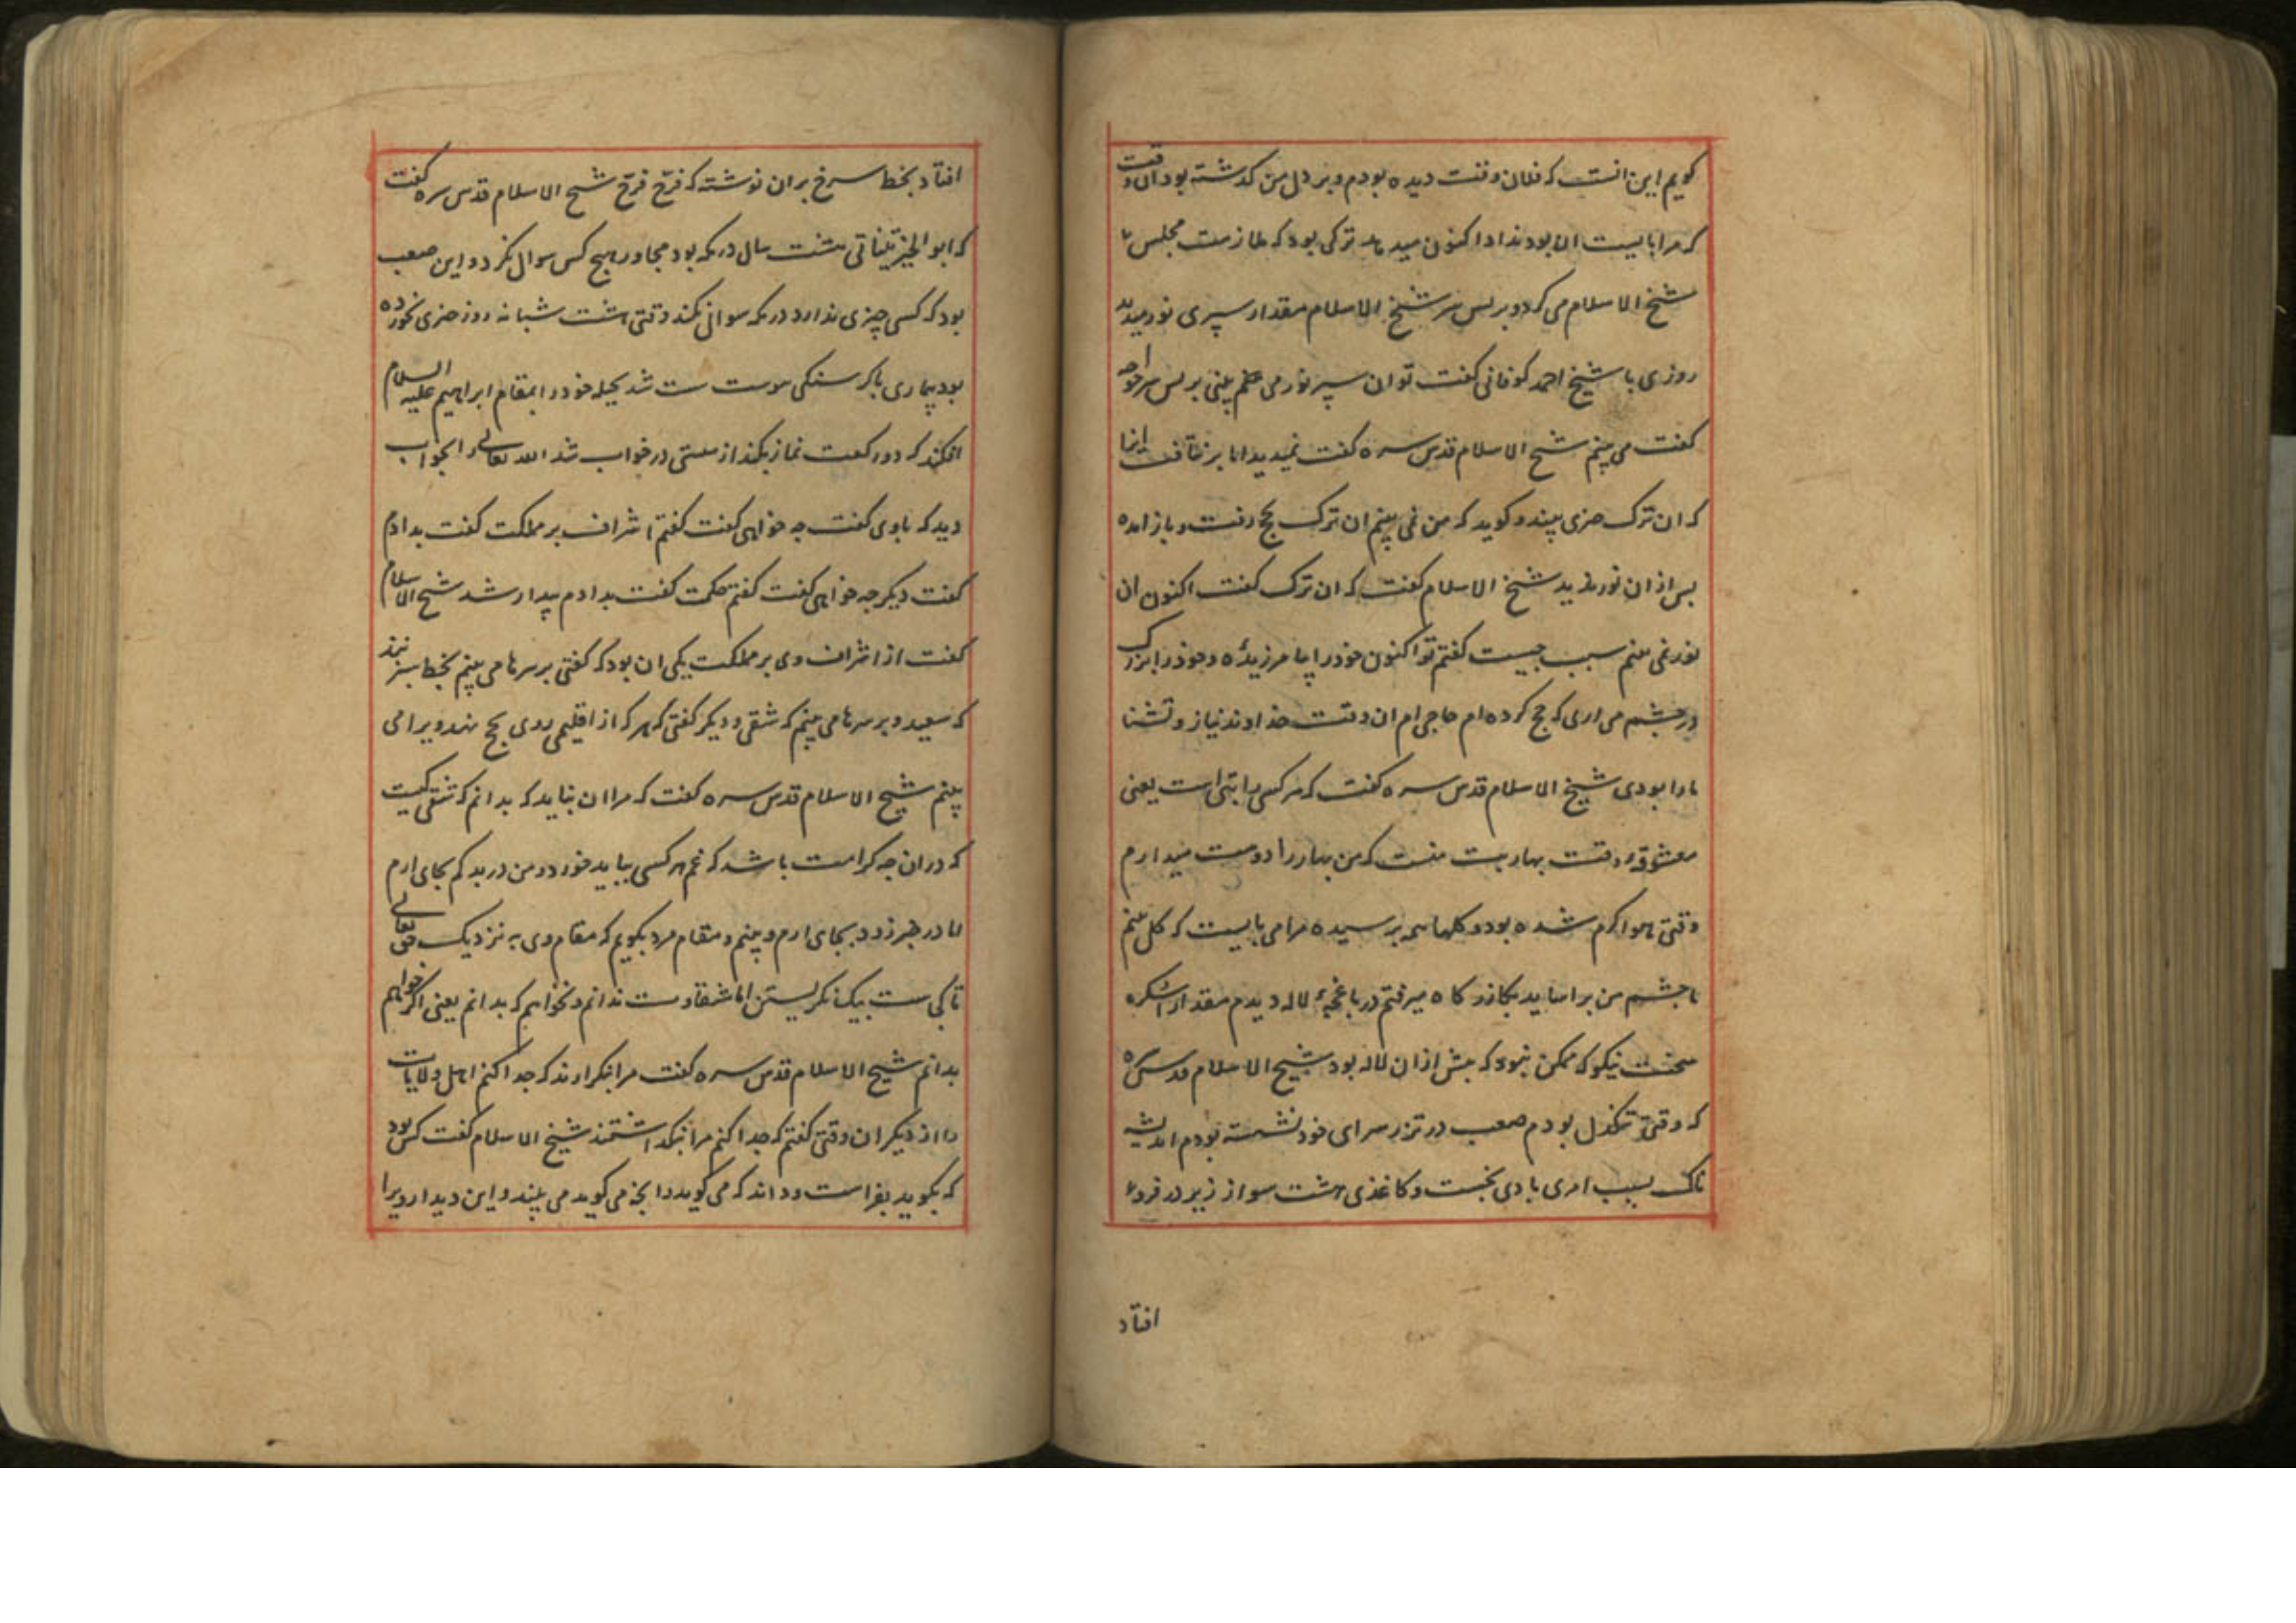 کویم این انست که فلان وقت دیده بودم و بر دل من کذشته بود ان وقت
که مرا بایست ان بود ندا دا کنون میدهد ترکی بود که ملازمت مجلس
شیخ الاسلام می کرد و بر پس سر شیخ الاسلام مقدار سپری نور میدید
روزی با شیخ احمد کوفانی کفت تو ان سپر نور می بینی بر پس سر خواجه
کفت می بینم شیخ الاسلام قدس سره کفت نمیدید اما بر نتافت
که ان ترک چزی بیند و کوید که من نمی بینم ان ترک بحج رفت و باز امده
پس از ان نور ندید شیخ الاسلام کفت که ان ترک کفت اکنون ان
نور نمی بینم سبب چیست کفتم تو اکنون خود را بیامرزیده و خود را بزرک
در چشم می اری که حج کرده ام حاجی ام ان وقت خداوند نیاز و تشنا
ما را بودی شیخ الاسلام قدس سره کفت که هر کسی را بتی است یعنی
معشوقه وقت بهار بت منست که من بهار را دوست میدارم
وقتی هوا کرم شده بود و کلها همه برسیده مرا می بایست که کل بینم
تا چشم من براساید بکازر کاه میرفتم در باغچه لاله دیدم مقدار اسکره
سخت نیکو که ممکن نبود که بیش از ان لاله بود شیخ الاسلام قدس سره
که وقتی تنکدل بودم صعب در تزر سرای خود نشسته بودم اندیشه
ناک بسبب امری بادی بجست و کاغذی هشت سو از زیر در فرو
افتاد
افتاد بخط سرخ بران نوشته که فرّج فرّج شیخ الاسلام قدس سره کفت
که ابو الخیر تیناتی هشت سال در مکه بود مجاور هیچ کس سوال نکرد و این صعب
بود که کسی چیزی ندارد در مکه سوال نکند وقتی هشت شبانه روز چزی نخورده
بود بیماری با کرسنکی سست شد بحیله خود را بمقام ابراهیم علیه السلام
افکند که دو رکعت نماز بکند از سستی در خواب شد الله تعالی را بخواب
دید که با وی کفت چه خواهی کفت کفتم اشراف بر مملکت کفت بدادم
کفت دیکر چه خواهی کفت کفتم حکمت کفت بدادم بیدار شد شیخ الاسلام
کفت از اشراف وی بر مملکت یکی ان بود که کفتی بر سرها می بینم بخط سبز نبذ
که سعید و بر سرها می بینم که شقی و دیکر کفتی که هر که از اقلیمی روی بحج نهد ویرا می
بینم شیخ الاسلام قدس سره کفت که مرا ان نباید که بدانم که شقی کیست
که دران چه کرامت باشد که غم هر کسی بباید خورد و من در بدکم بجای ارم
اما در خبر زود بجای ارم و بینم و مقام مرد بکویم که مقام وی به نزدیک حق تعالی
تا کجاست بیک نکریستن اما شقاوت ندانم و نخواهم که بدانم یعنی اکر خواهم
بدانم شیخ الاسلام قدس سره کفت مرا نکذارند که جدا کنم اهل ولایات
را از دیکران وقتی کفتم که جدا کنم مرا نبکذاشتند شیخ الاسلام کفت کس بود
که بکوید بفراست و داند که می کوید و انچه می کوید می بیند و این دیدار ویرا